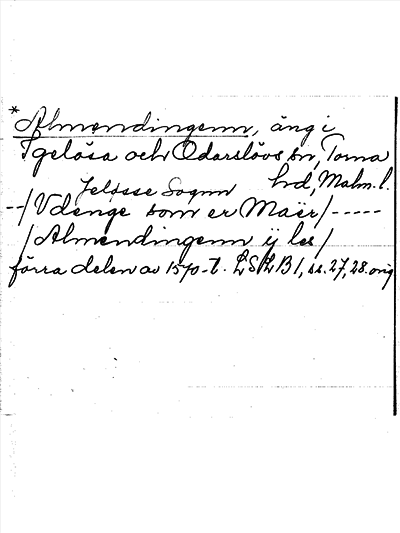 *Almendingenn, äng i
Igelösa och Odarslövs sn, Torna
hd, Malm. l.
Jelösse Sognn
--/Vdenge som er Maër/-----
/Almendingenn ij les/
förra delen av 1570-t. LSLB 1, ss. 27, 28. orig